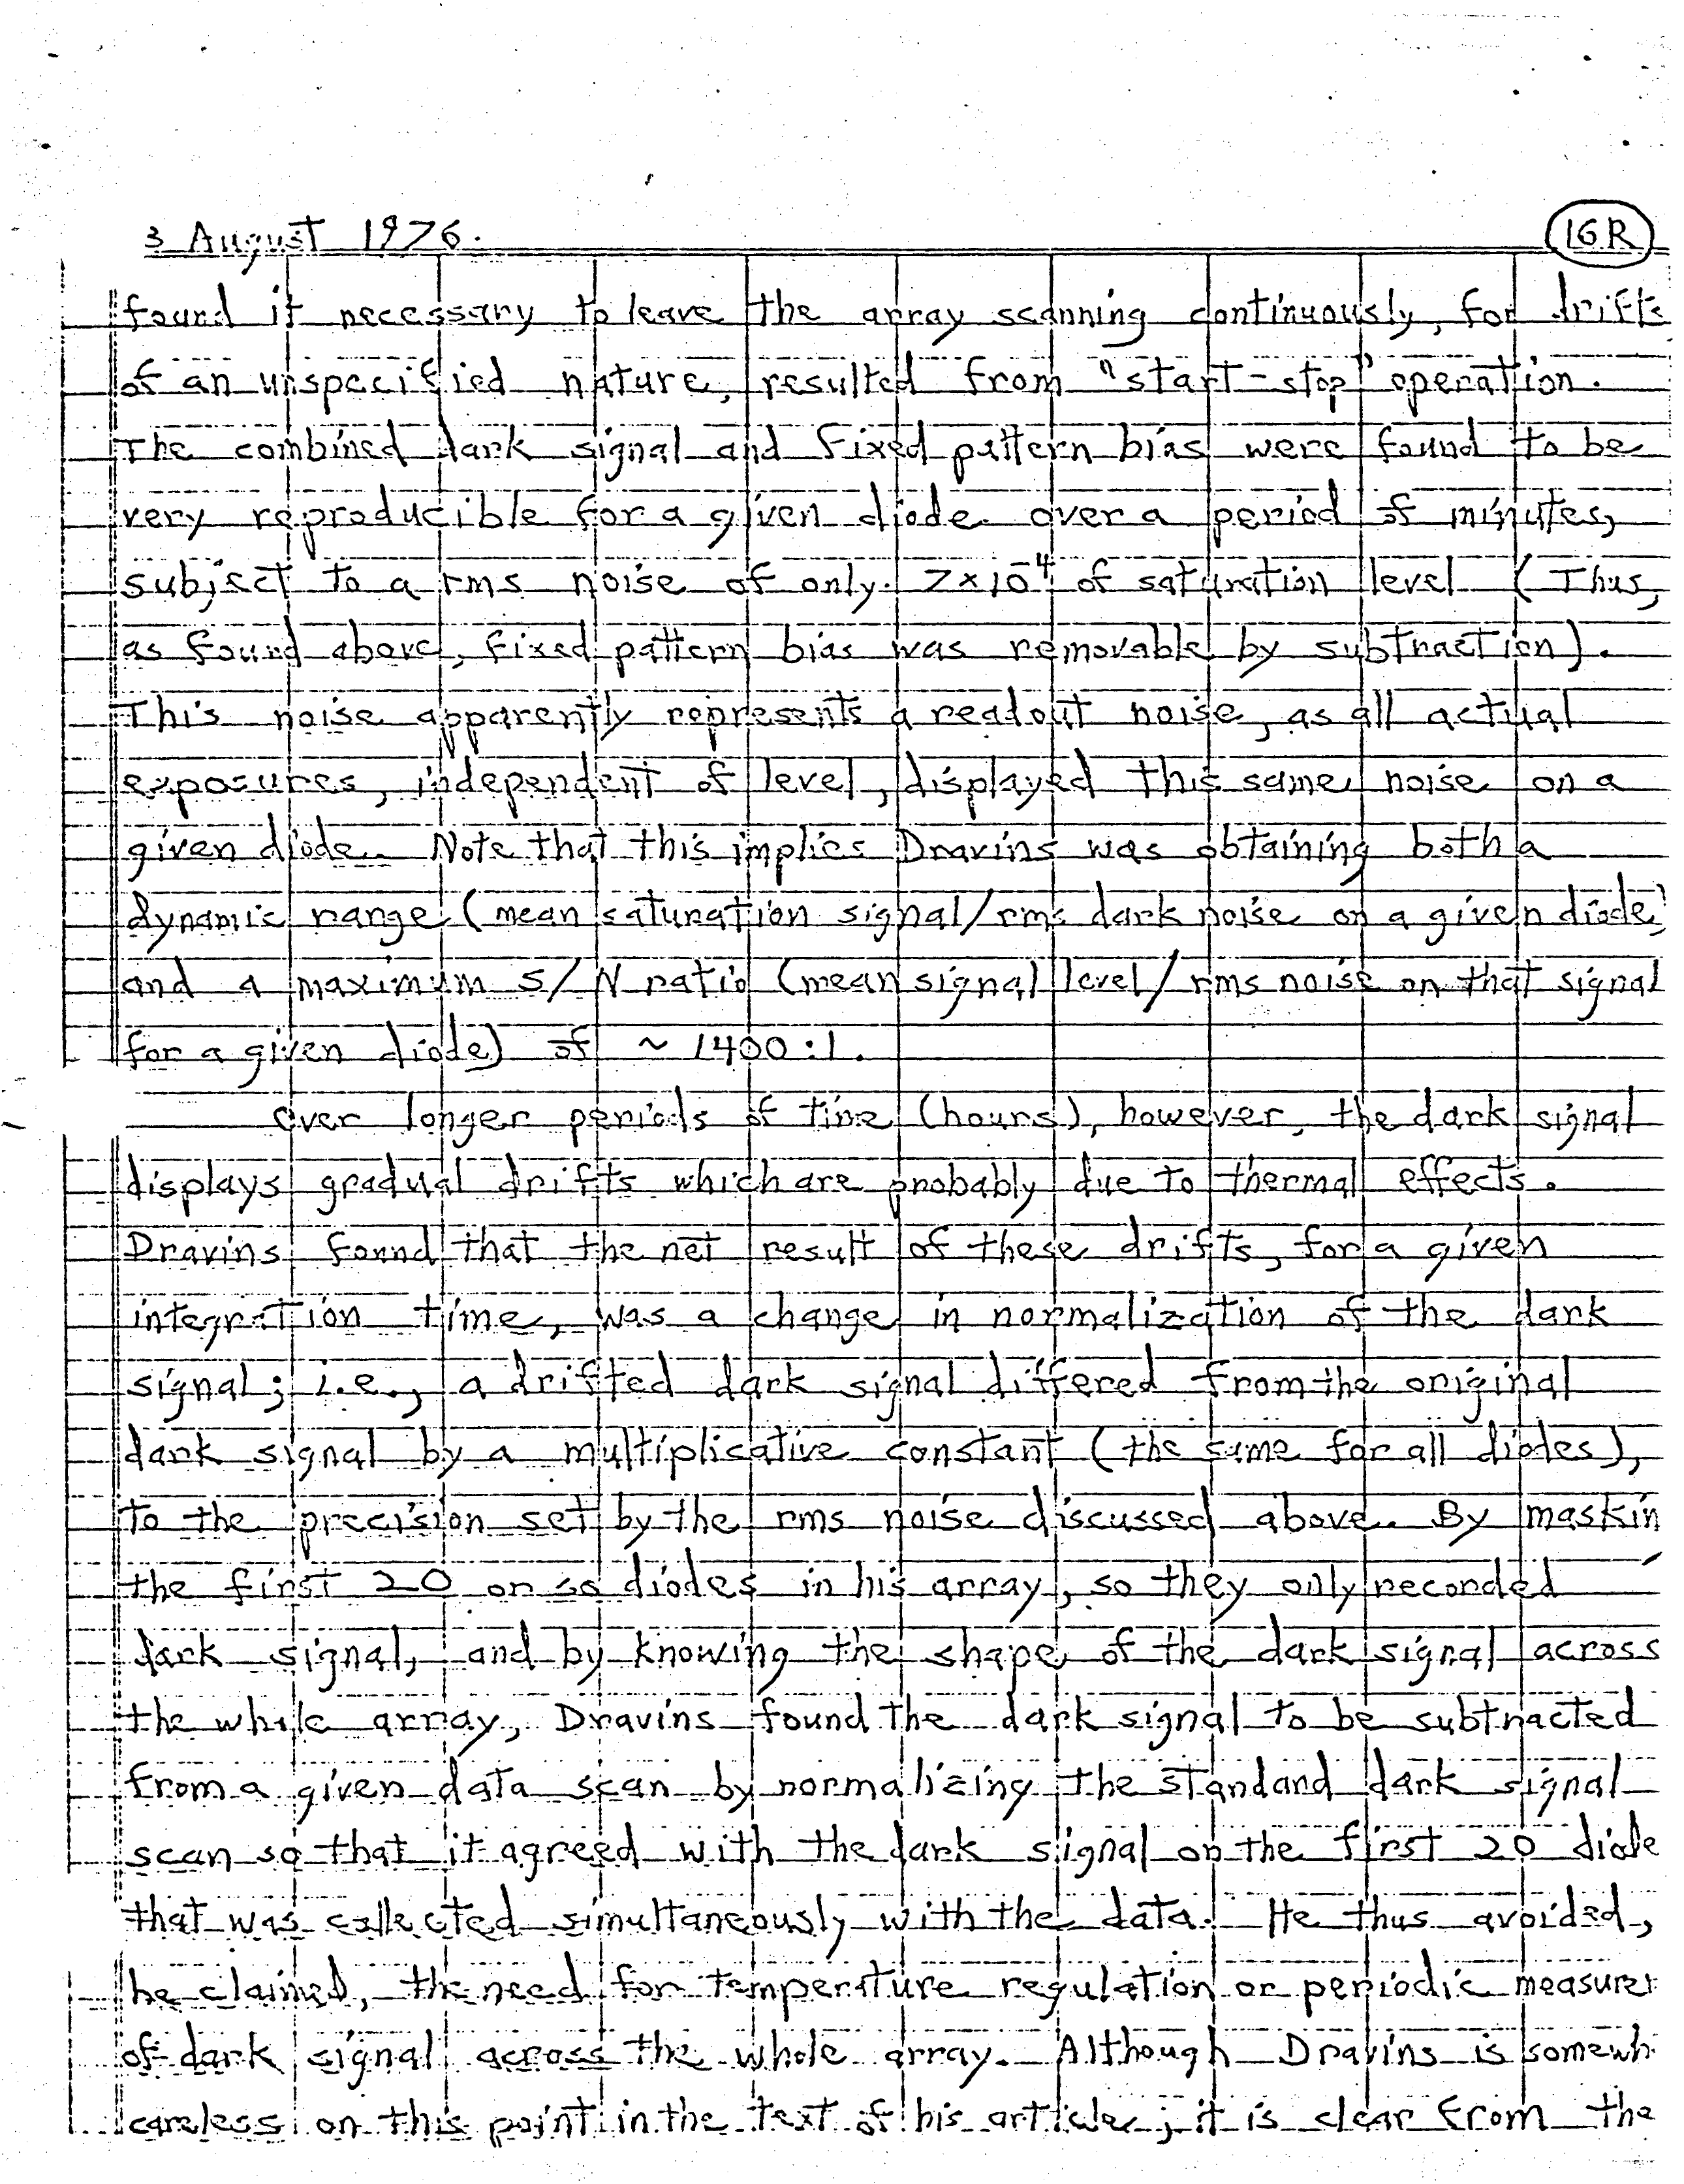 3 August 1976.
16R
found it necessary to leave the array scanning continuously, for drifts
of an unspecified nature, resulted from "start-stop" operation.
The combined dark signal and fixed pattern bias were found to be
very reproducible for a given diode over a period of minutes,
subject to a rms noise of only 7×10⁻⁴ of saturation level (Thus,
as found above, fixed pattern bias was removable by subtraction).
This noise apparently represents a readout noise, as all actual
exposures, independent of level, displayed this same noise on a
given diode. Note that this implies Dravins was obtaining both a
dynamic range (mean saturation signal/rms dark noise on a given diode)
and a maximum S/N ratio (mean signal level/rms noise on that signal
for a given diode) of ~ 1400:1.
Over longer periods of time (hours), however, the dark signal
displays gradual drifts which are probably due to thermal effects.
Dravins found that the net result of these drifts, for a given
integration time, was a change in normalization of the dark
signal; i.e., a drifted dark signal differed from the original
dark signal by a multiplicative constant (the same for all diodes),
to the precision set by the rms noise discussed above. By maskin
the first 20 or so diodes in his array, so they only recorded
dark signal, and by knowing the shape of the dark signal across
the whole array, Dravins found the dark signal to be subtracted
from a given data scan by normalizing the standard dark signal
scan so that it agreed with the dark signal on the first 20 diode
that was collected simultaneously with the data. He thus avoided,
he claimed, the need for temperature regulation or periodic measure
of dark signal across the whole array. Although Dravins is somewh
careless on this point in the text of his article, it is clear from the